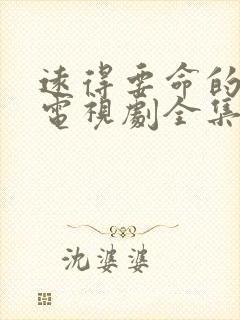 遠得要命的
電視劇全集
沈婆婆